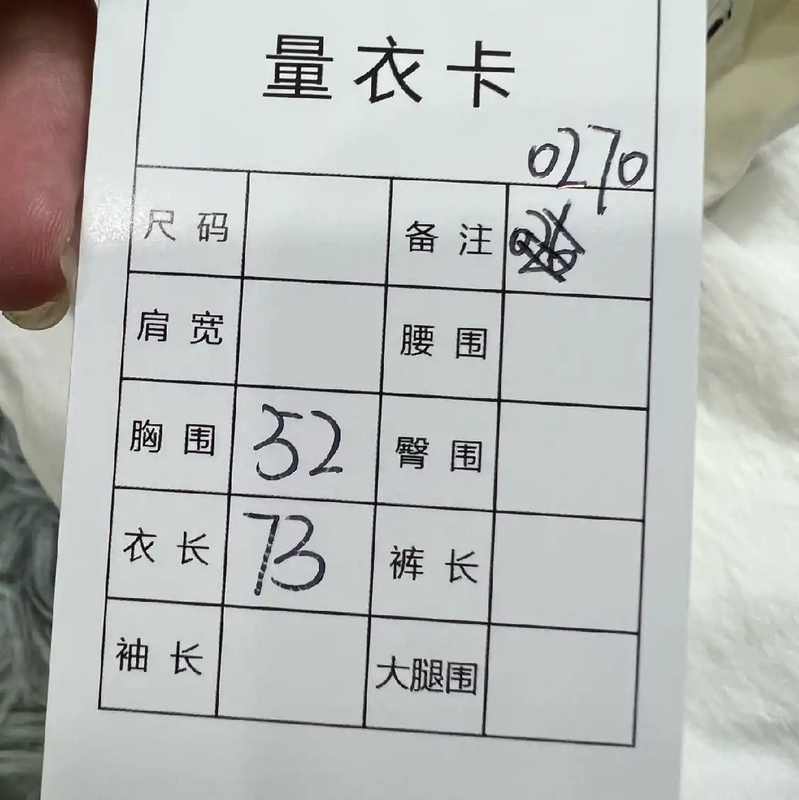 量衣卡
0270
尺码 备注
肩宽 腰围
胸围 52 臀围
衣长 73 裤长
袖长 大腿围